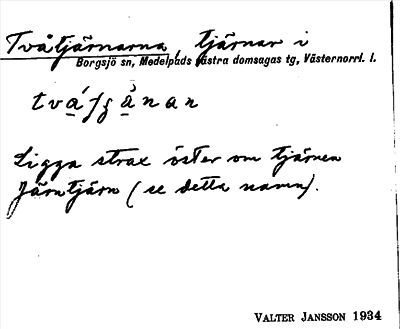 Tvåtjärnarna, tjärnar i
Borgsjö sn, Medelpads västra domsagas tg, Västernorrl. l.
Ligga strax öster om tjärnen
Järntjärn (se detta namn).
VALTER JANSSON 1934